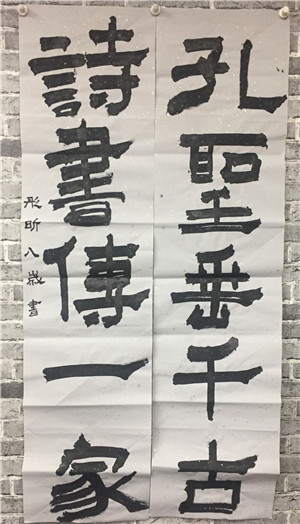 孔聖垂千古
詩書傳一家
彤昕八歲書